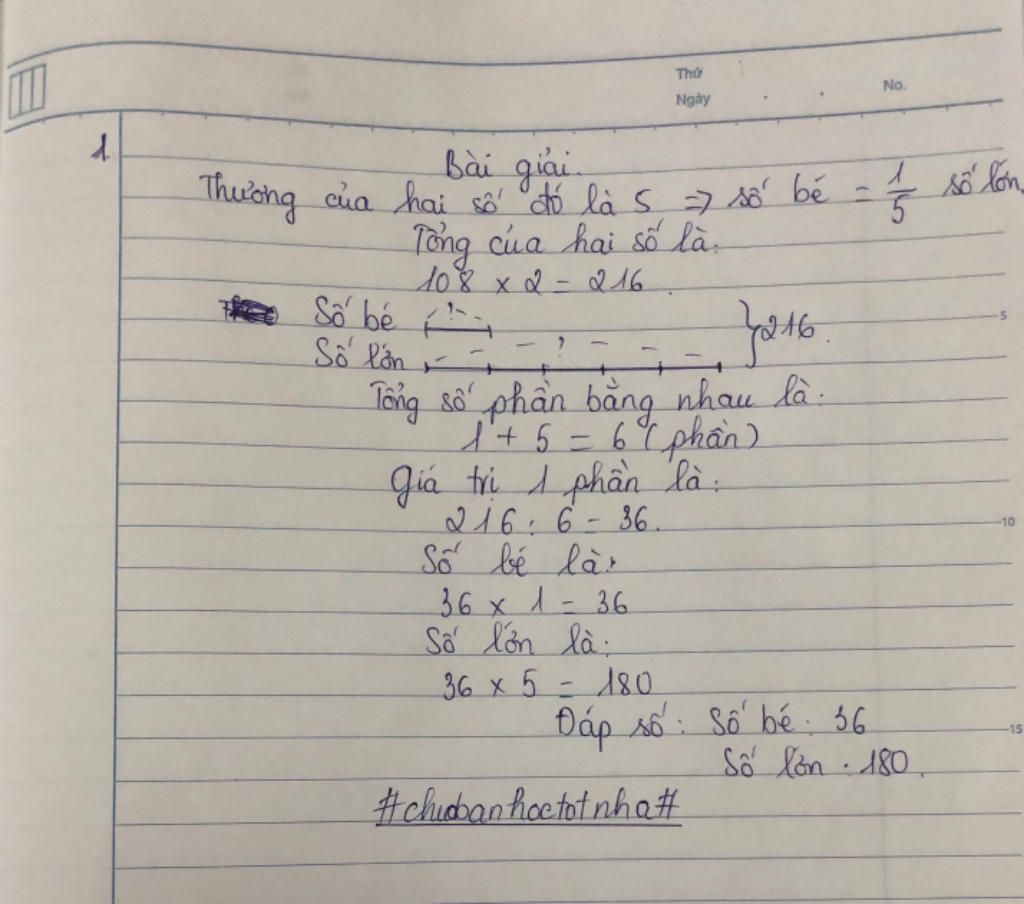 Thứ
Ngày
No.
1
Bài giải.
Thương của hai số đó là 5 => số bé = 1/5 số lớn.
Tổng của hai số là:
108 x 2 = 216.
Số bé ?
Số lớn ? } 216.
5
Tổng số phần bằng nhau là:
1 + 5 = 6 (phần)
Giá trị 1 phần là:
216 : 6 = 36.
10
Số bé là:
36 x 1 = 36
Số lớn là:
36 x 5 = 180
Đáp số: Số bé: 36
15
Số lớn: 180.
#chucbanhoctotnha#